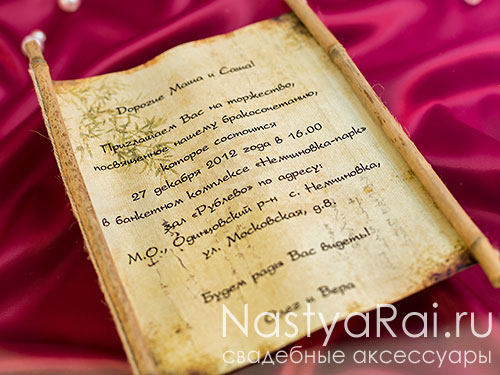 Дорогие Маша и Саша!
Приглашаем Вас на торжество,
посвященное нашему бракосочетанию,
которое состоится
27 декабря 2012 года в 16.00
в банкетном комплексе «Немчиновка-парк»
зал «Рублево» по адресу:
М.О., Одинцовский р-н с. Немчиновка,
ул. Московская, д.8.
Будем рады Вас видеть!
и Вера
NastyaRai.ru
свадебные аксессуары